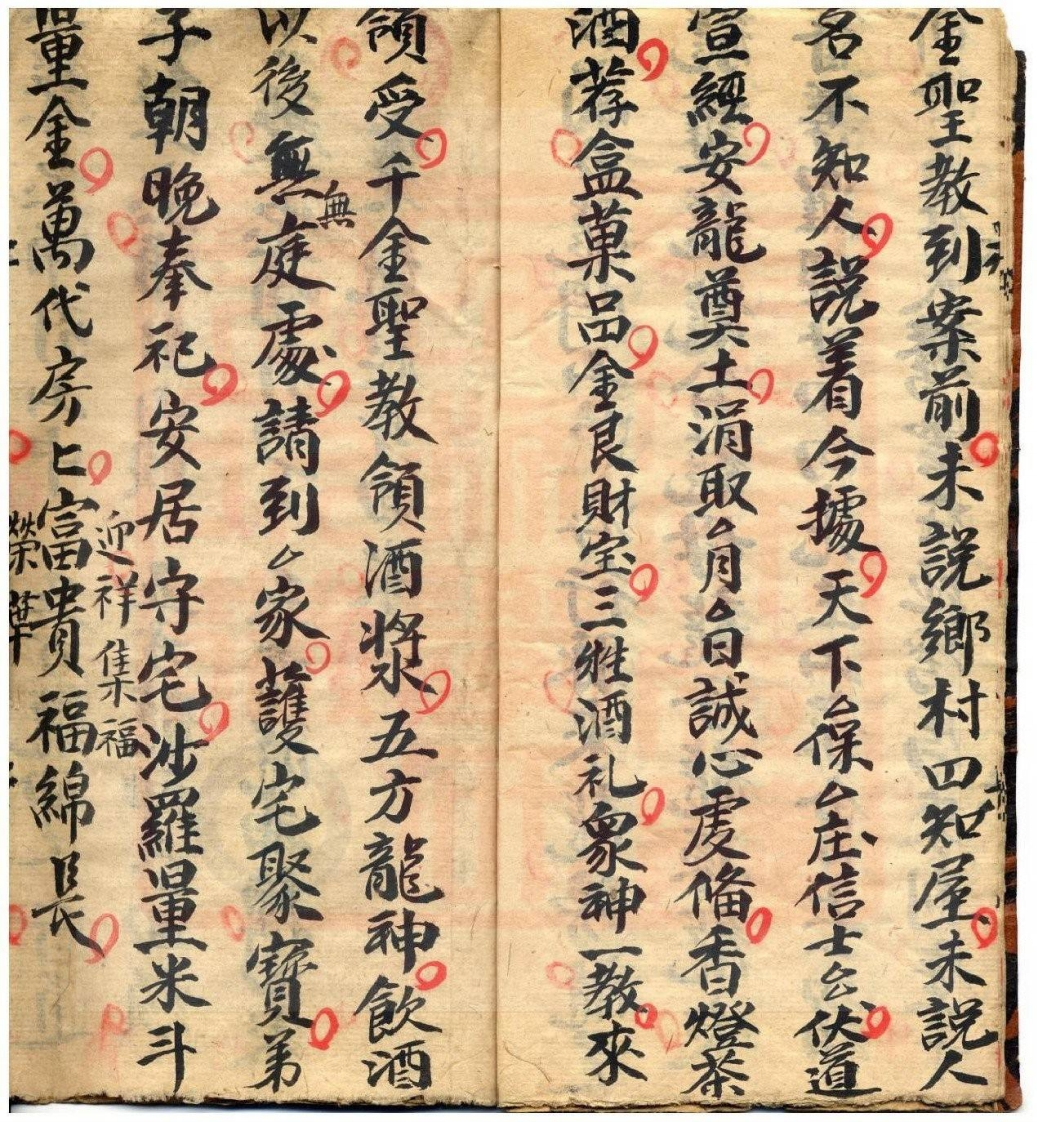 金聖教到案前未説鄉村四知屋未説人
名不知人説着今據天下厶保厶庄信士厶伏道
宣經安龍奠土涓取厶月厶日誠心虔俻香燈茶
酒荐盒菓品金艮財宝三牲酒礼衆神一教來
領受千金聖教領酒漿五方龍神飲酒
以後無庭處請到厶家護宅聚寶弟
無
子朝晚奉祀安居守宅沙羅量米斗
迎祥集福
量金萬代房匕富貴福綿長
榮華